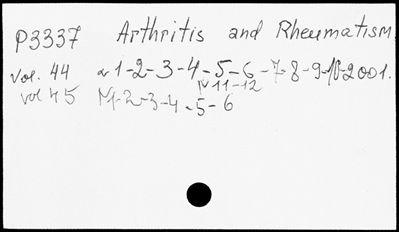 P3337 Arthritis and Rheumatism
vol. 44 N 1-2-3-4-5-6-7-8-9-10-2001.
N 11-12
vol 45 N1-2-3-4-5-6